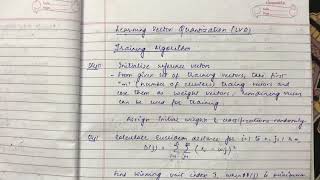 Learning Vector Quantization (LVQ)
Training Algorithm
Initialize reference vector
- From given set of training vectors, take first
"m" (number of clusters) training vectors and
use them as weight vectors, remaining vectors
can be used for training.
Assign initial weight & classifications randomly
Calculate Euclidean distance for i=1 to n, j=1 to m
find winning unit index J, when D(J) is minimum